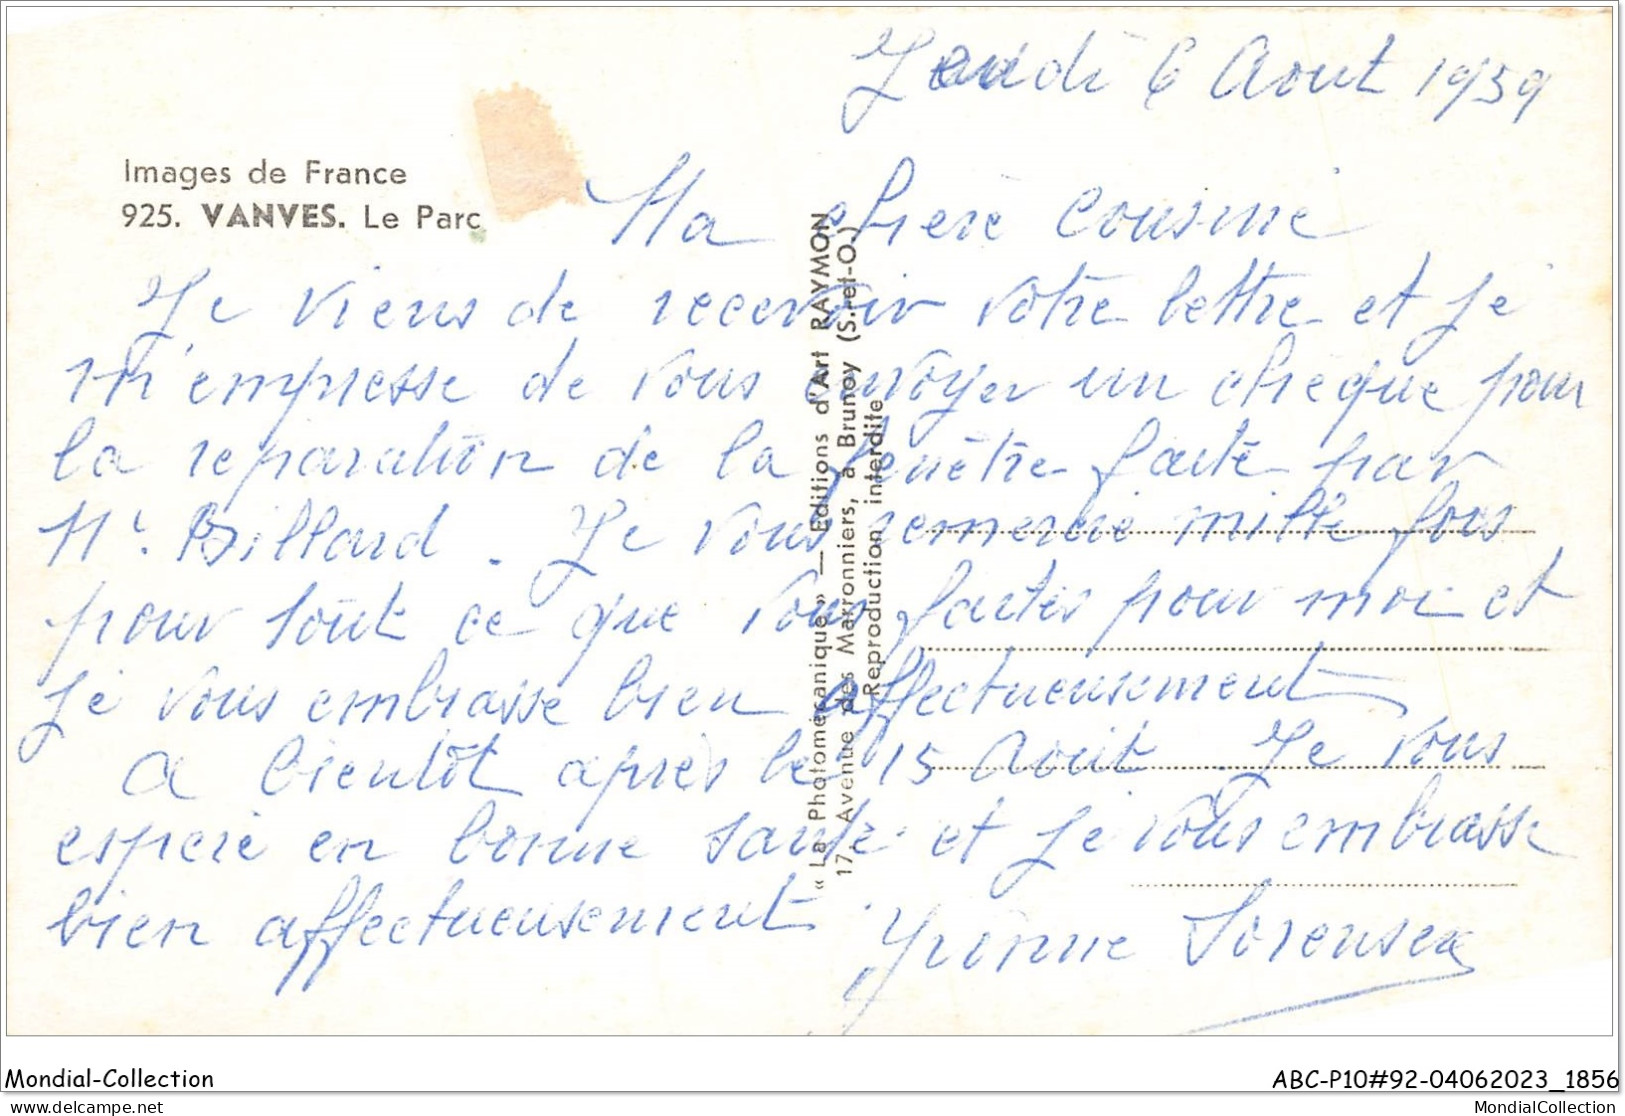 Jeudi 6 Aout 1959
Images de France
925. VANVES. Le Parc
Ma chère cousine
Je viens de recevoir votre lettre et je
m'empresse de vous envoyer un cheque pour
la reparation de la fenêtre faite par
Mr. Billard. Je vous remercie mille fois
pour tout ce que vous faites pour moi et
je vous embrasse bien affectueusement
a bientôt après le 15 Août. Je vous
espere en bonne santé et je vous embrasse
bien affectueusement
Yvonne Sorensen
« La Photomécanique » — Editions d'Art RAYMON
17, Avenue des Marronniers, à Brunoy (S.-et-O.)
Reproduction interdite
Mondial-Collection
ABC-P10#92-04062023_1856
delcampe.net
MondialCollection